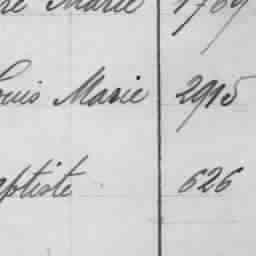 re Marie 1769
ouis Marie 2915
aptiste 626